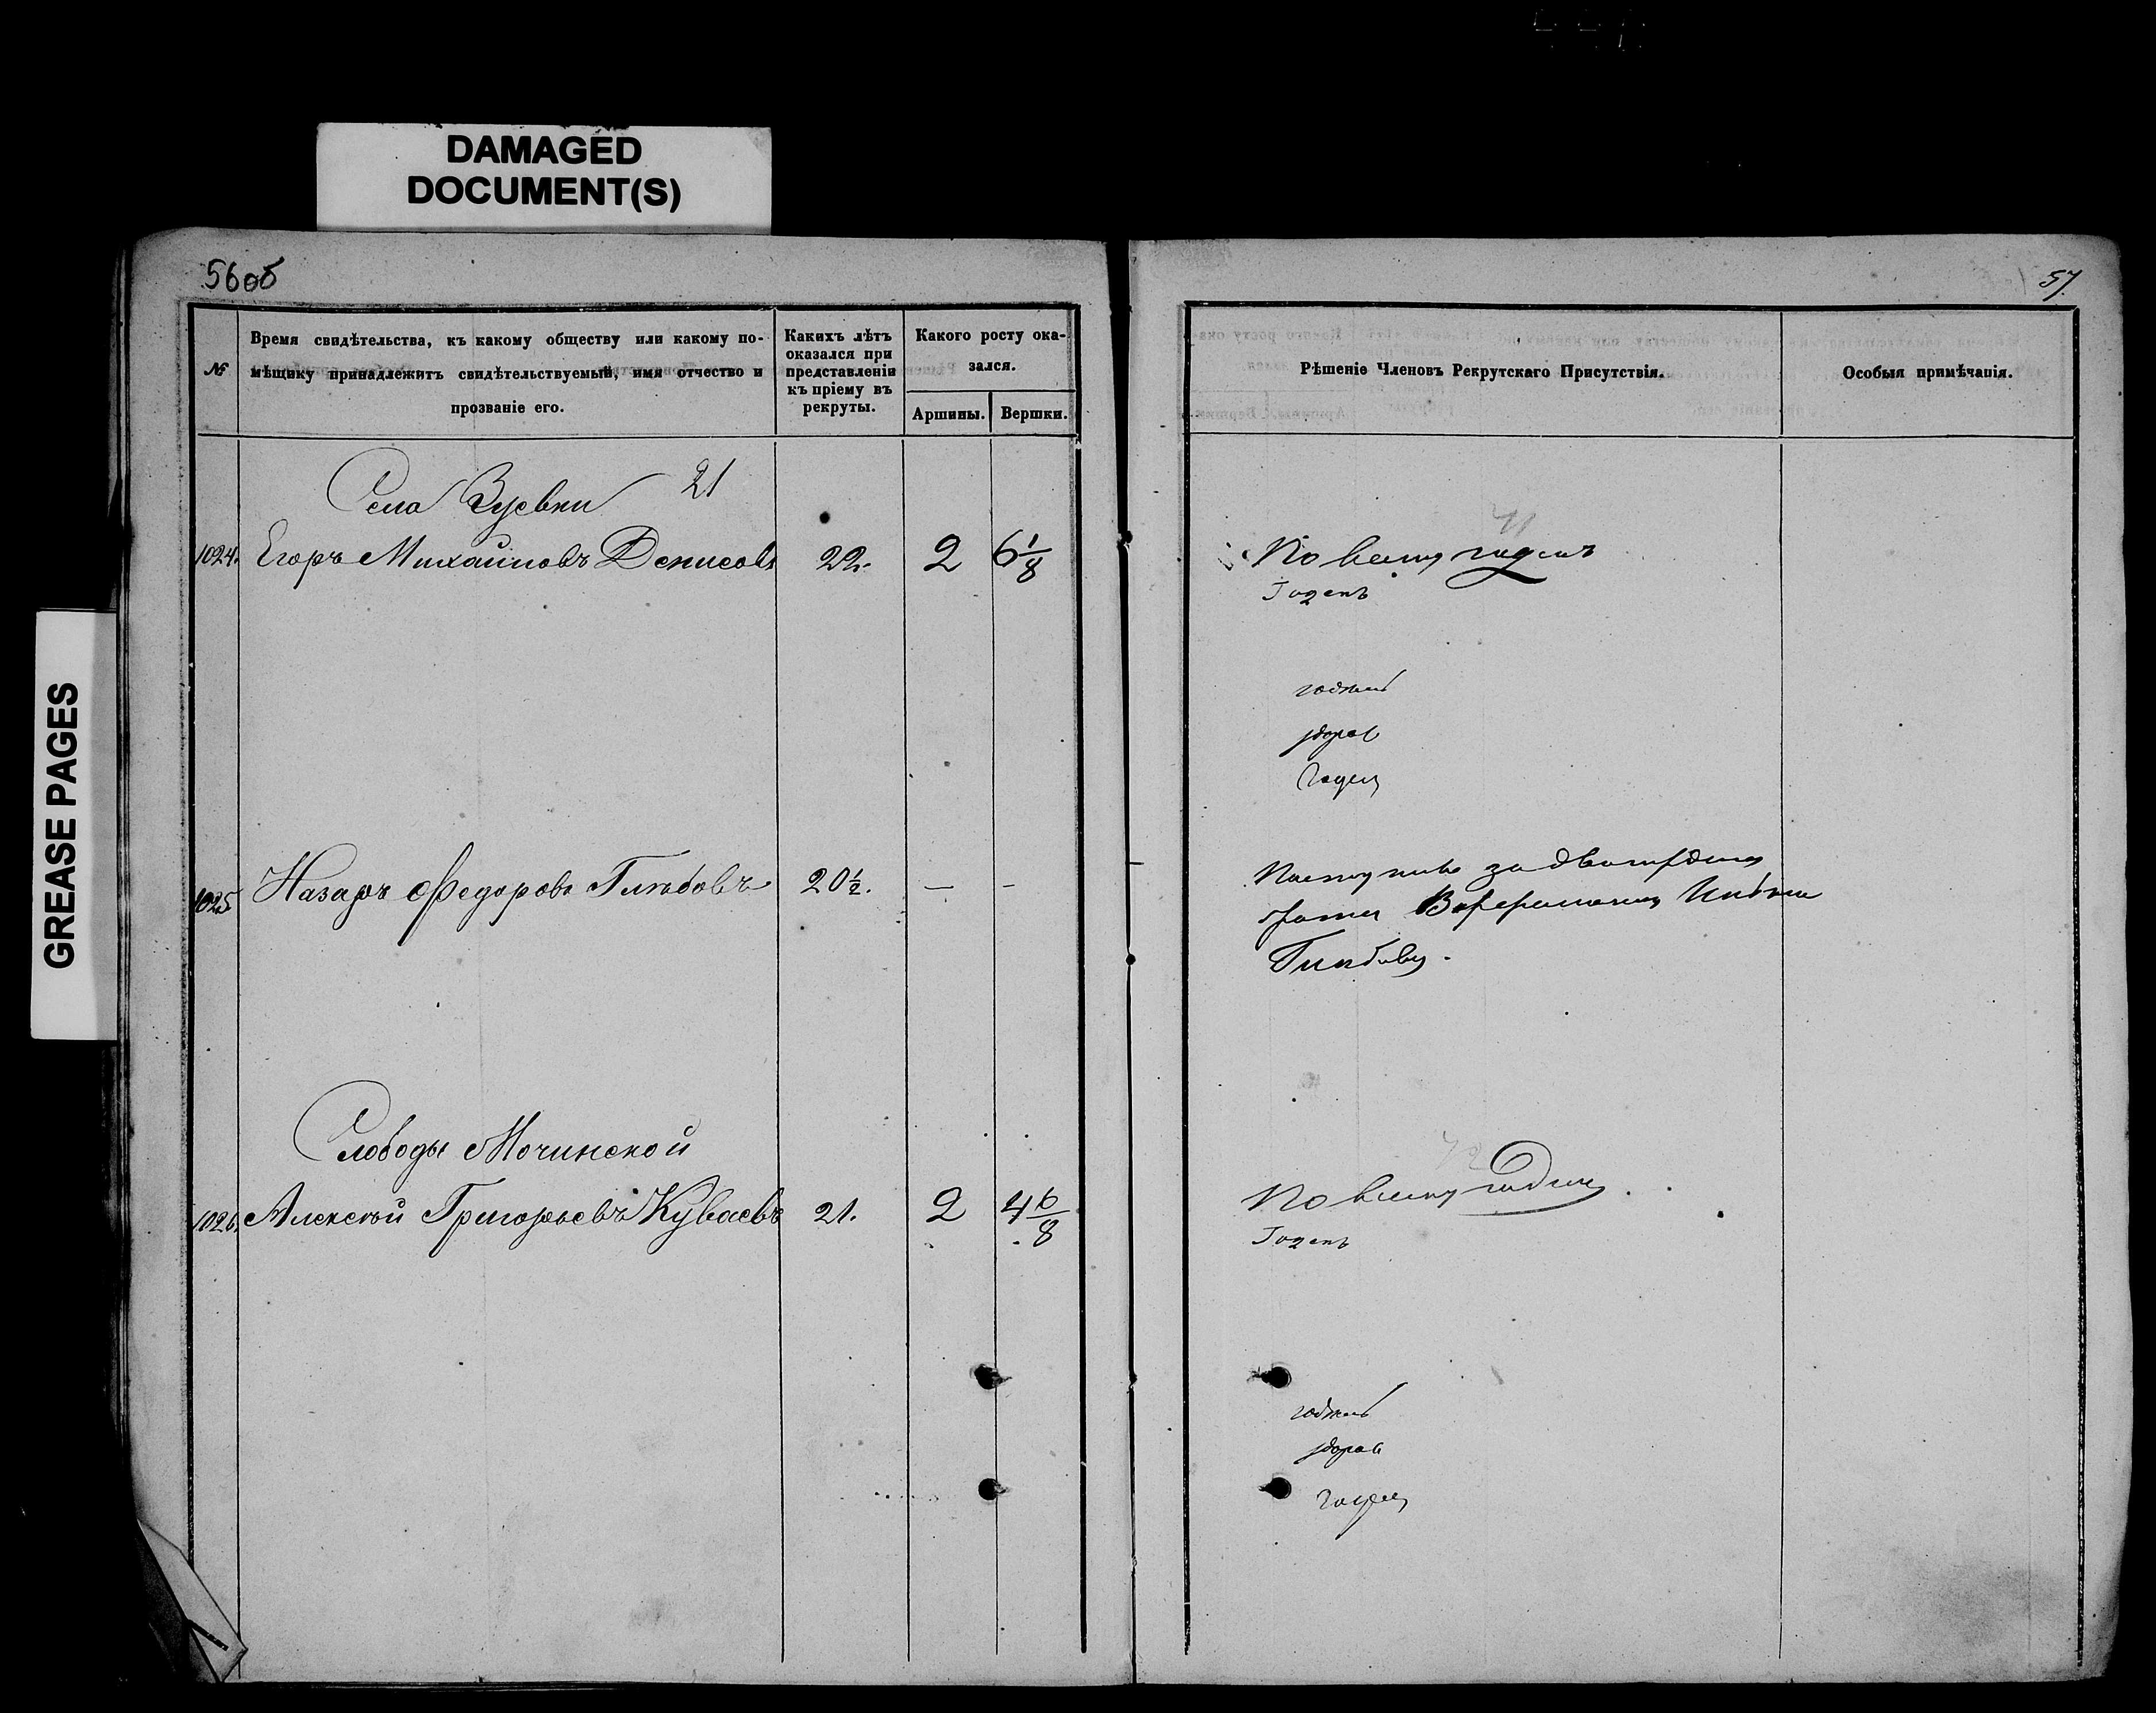 DAMAGED
DOCUMENT(S)
GREASE PAGES
56об
№
Время свидѣтельства, къ какому обществу или какому по-
мѣщику принадлежитъ свидѣтельствуемый, имя отчество и
прозваніе его.
Какихъ лѣтъ
оказался при
представленіи
къ пріему въ
рекруты.
Какого росту ока-
зался.
Аршины.
Вершки.
Села Зуевки 21
1024. Егоръ Михайловъ Денисовъ 22. 2 6 1/8
1025 Назаръ Федоровъ Глѣбовъ 20 1/2. — –
Слободы Мочинской
1026 Алексѣй Григорьевъ Куваевъ 21. 2 4 6/8
57.
Рѣшеніе Членовъ Рекрутскаго Присутствія.
Особыя примѣчанія.
41
По всему годенъ
Годенъ
годенъ
здоров
Годен
за двоюрдна
брата
Глебова.
42
По всему годен
Годенъ
годенъ
здоров
Годен